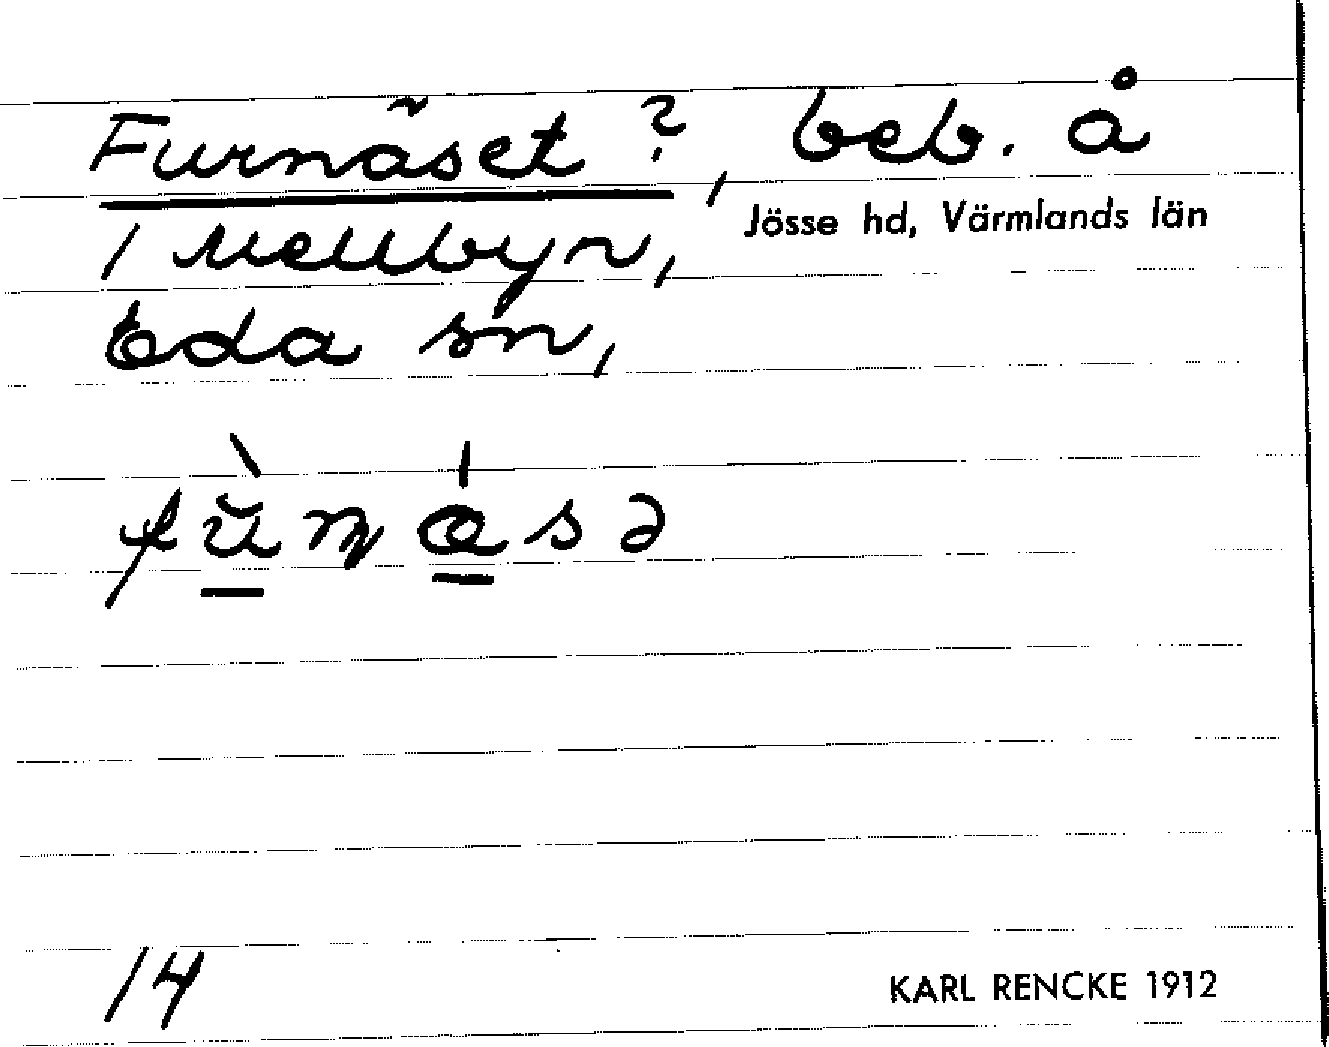 Furnäset ?, beb. å
Jösse hd, Värmlands län
1 Mellbyn,
Eda sn,
14
KARL RENCKE 1912